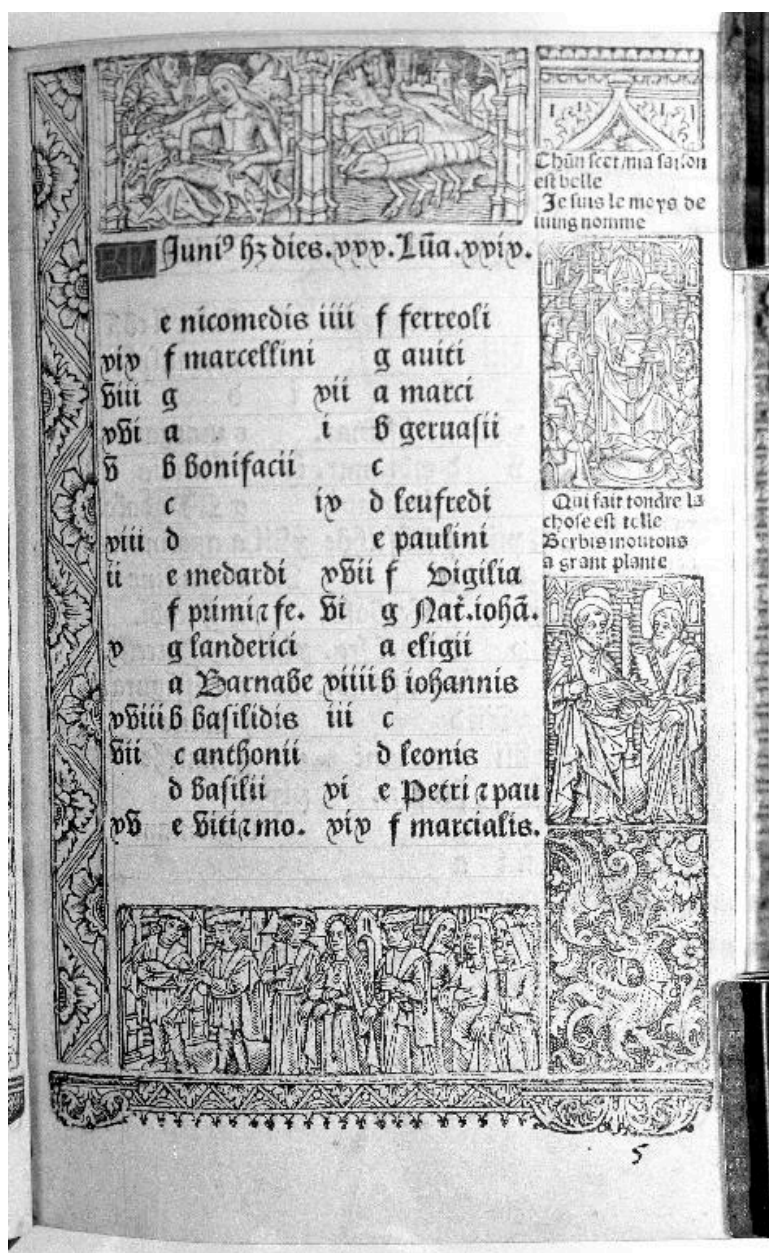 Juniꝰ hꝫ dies.xxx.Lūa.xxix.
e nicomedis
xix f marcellini
viii g
xvi a
v b bonifacii
c
xiii d
ii e medardi
f primi ⁊ fe.
x g landerici
a Barnabe
xviii b basilidis
vii c anthonii
d basilii
xv e viti ⁊ mo.
iiii f ferreoli
g auiti
xii a marci
i b geruasii
c
ix d leufredi
e paulini
xvii f Vigilia
vi g Nat.iohā.
a eligii
xiiii b iohannis
iii c
d leonis
xi e Petri ⁊ pau
xix f marcialis.
Chūn scet/ma saison
est belle
Je suis le moys de
iuing nomme
Qui fait tondre la
chose est telle
Berbis moutons
a grant plante
5